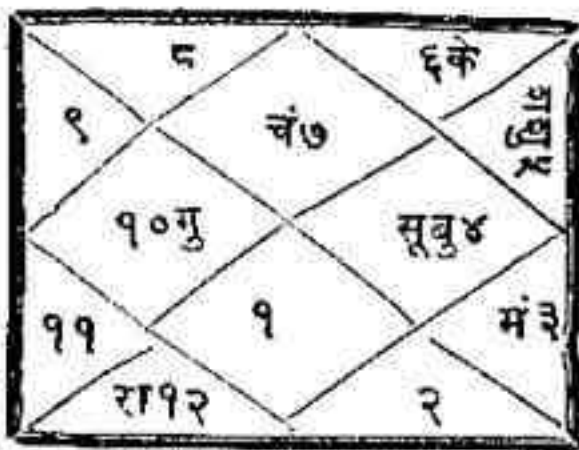 ८
६के
९
चं७
शशु५
१०गु
सूबु४
११
१
मं३
रा१२
२